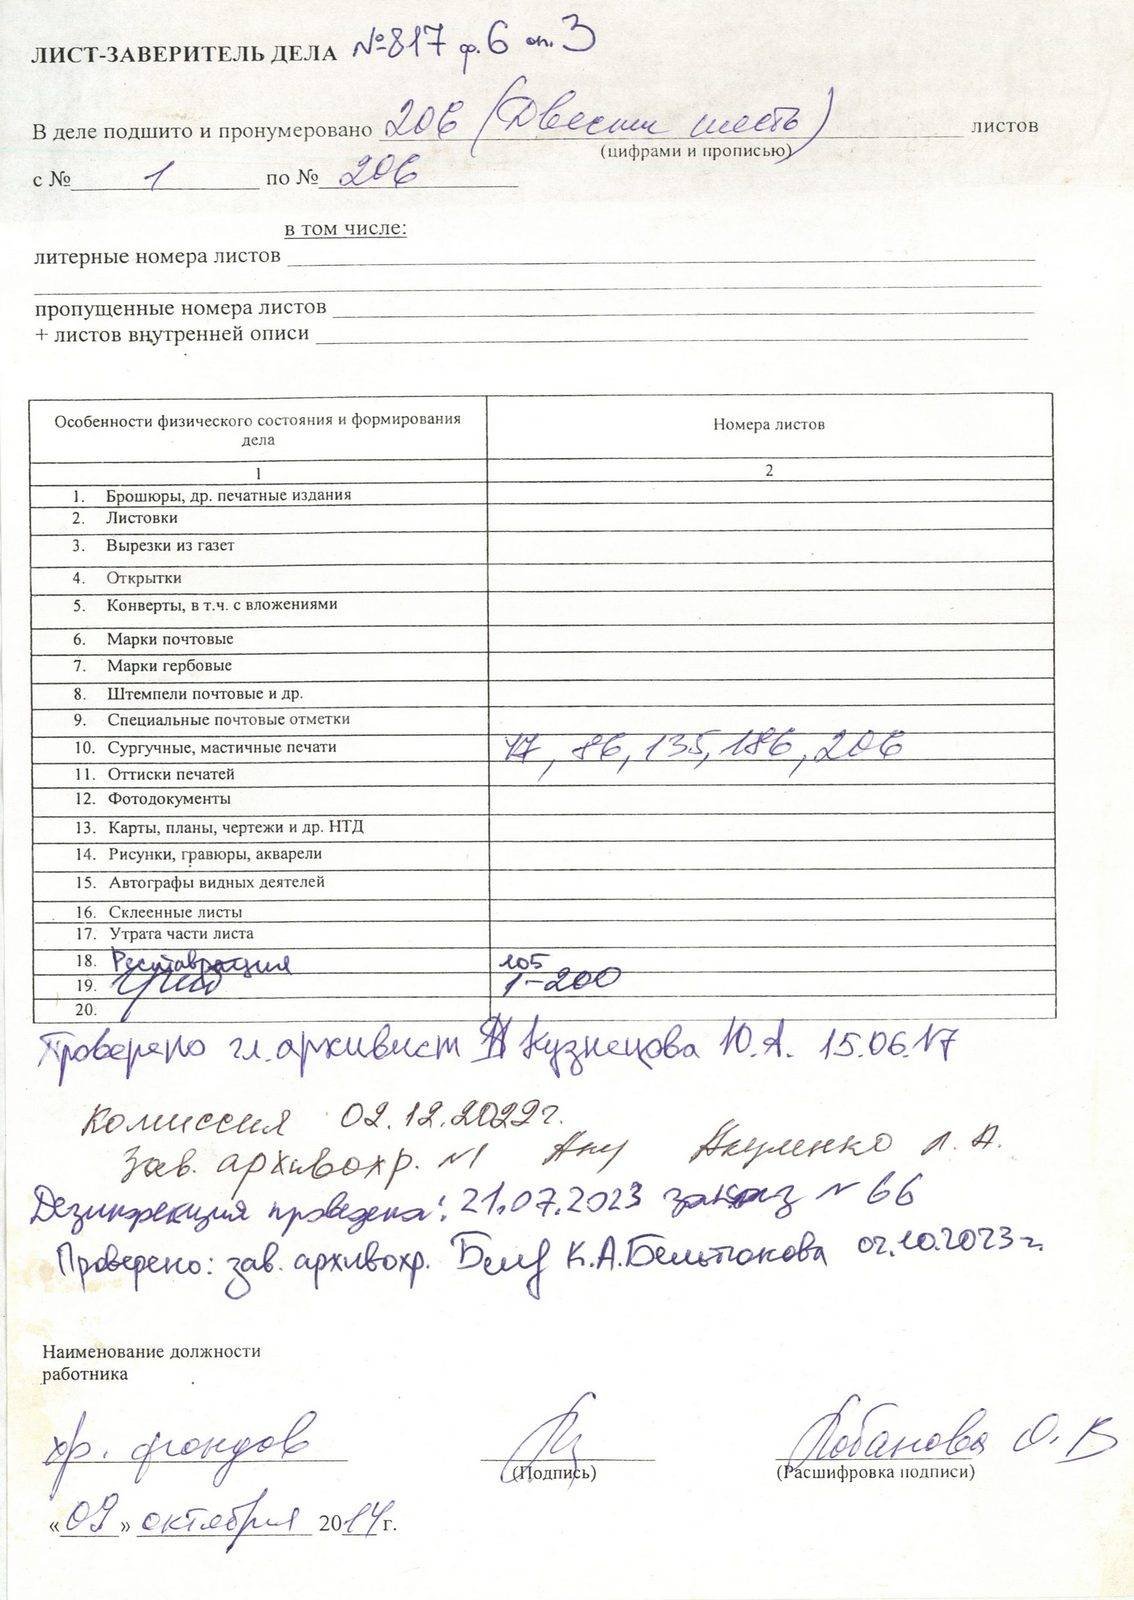 ЛИСТ-ЗАВЕРИТЕЛЬ ДЕЛА №817 ф.6 оп.3
В деле подшито и пронумеровано 206 (Двести шесть) листов
(цифрами и прописью)
с № 1 по № 206
в том числе:
литерные номера листов
пропущенные номера листов
+ листов внутренней описи
Особенности физического состояния и формирования дела Номера листов
1 2
1. Брошюры, др. печатные издания
2. Листовки
3. Вырезки из газет
4. Открытки
5. Конверты, в т.ч. с вложениями
6. Марки почтовые
7. Марки гербовые
8. Штемпели почтовые и др.
9. Специальные почтовые отметки
10. Сургучные, мастичные печати 47, 86, 135, 186, 206
11. Оттиски печатей
12. Фотодокументы
13. Карты, планы, чертежи и др. НТД
14. Рисунки, гравюры, акварели
15. Автографы видных деятелей
16. Склеенные листы
17. Утрата части листа
18. Реставрация 105
19. 1-200
20.
Проверено гл. архивист Кузнецова Ю.А. 15.06.17
Комиссия 02.12.2022г.
Зав. архивохр. №1 Акуленко Л.А.
Дезинфекция проведена: 21.07.2023 заказ №66
Проверено: зав. архивохр. К.А.Бельтюкова 04.10.2023г.
Наименование должности
работника
хр. фондов Лобанова О.В
(Подпись) (Расшифровка подписи)
«09» октября 2014г.